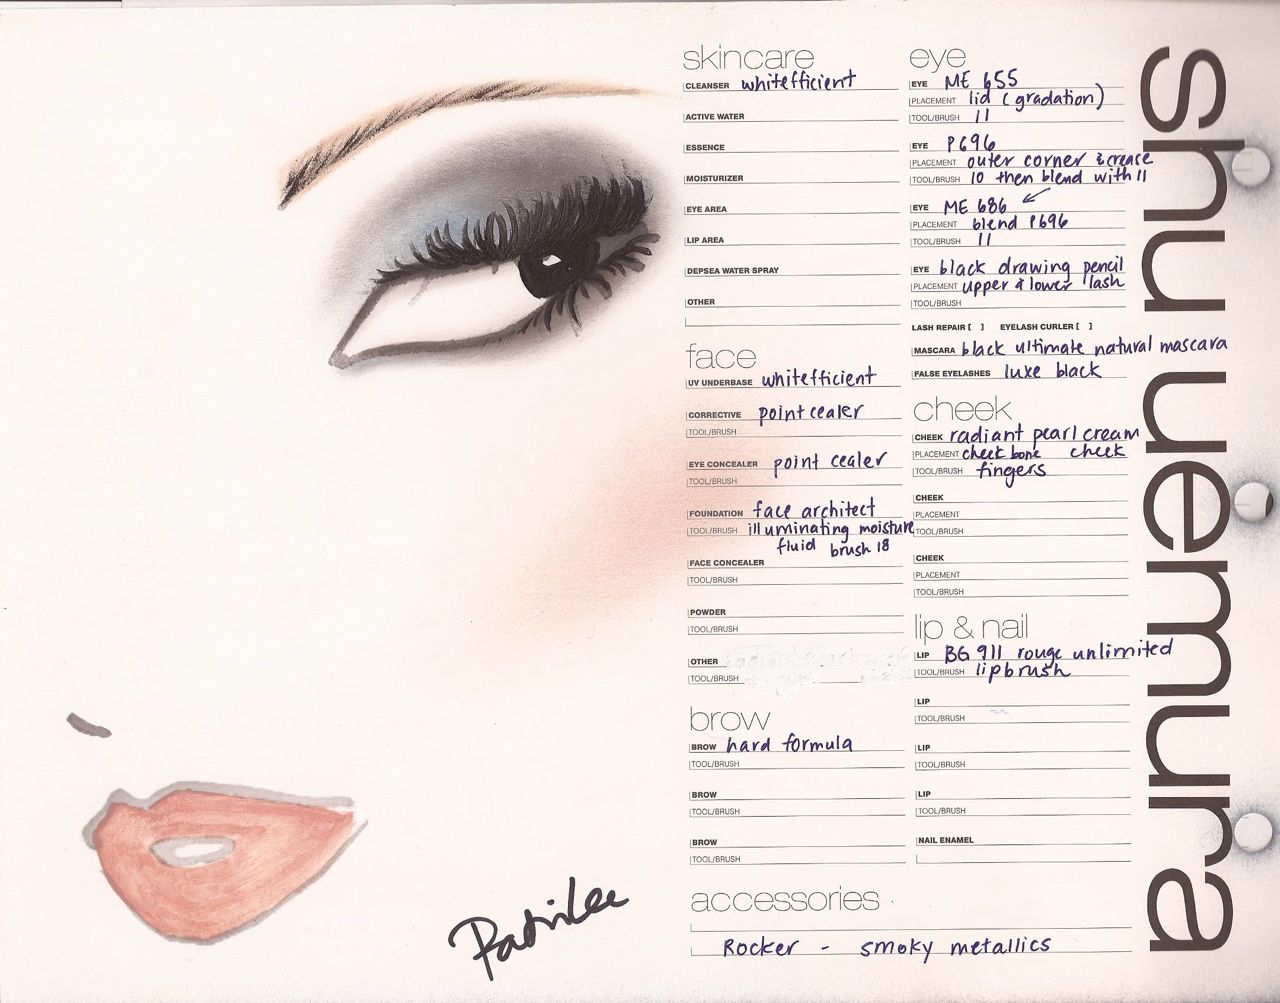 skincare
CLEANSER whitefficient
ACTIVE WATER
ESSENCE
MOISTURIZER
EYE AREA
LIP AREA
DEPSEA WATER SPRAY
OTHER
face
UV UNDERBASE whitefficient
CORRECTIVE point cealer
TOOL/BRUSH
EYE CONCEALER point cealer
TOOL/BRUSH
FOUNDATION face architect
TOOL/BRUSH illuminating moisture
fluid brush 18
FACE CONCEALER
TOOL/BRUSH
POWDER
TOOL/BRUSH
OTHER
TOOL/BRUSH
brow
BROW hard formula
TOOL/BRUSH
BROW
TOOL/BRUSH
BROW
TOOL/BRUSH
eye
EYE ME 655
PLACEMENT lid (gradation)
TOOL/BRUSH 11
EYE P696
PLACEMENT outer corner & crease
TOOL/BRUSH 10 then blend with 11
EYE ME 686
PLACEMENT blend P696
TOOL/BRUSH 11
EYE black drawing pencil
PLACEMENT upper & lower lash
TOOL/BRUSH
LASH REPAIR [ ] EYELASH CURLER [ ]
MASCARA black ultimate natural mascara
FALSE EYELASHES luxe black
cheek
CHEEK radiant pearl cream
PLACEMENT cheek bone cheek
TOOL/BRUSH fingers
CHEEK
PLACEMENT
TOOL/BRUSH
CHEEK
PLACEMENT
TOOL/BRUSH
lip & nail
LIP BG 911 rouge unlimited
TOOL/BRUSH lipbrush
LIP
TOOL/BRUSH
LIP
TOOL/BRUSH
LIP
TOOL/BRUSH
NAIL ENAMEL
accessories
Rocker - smoky metallics
shu uemura